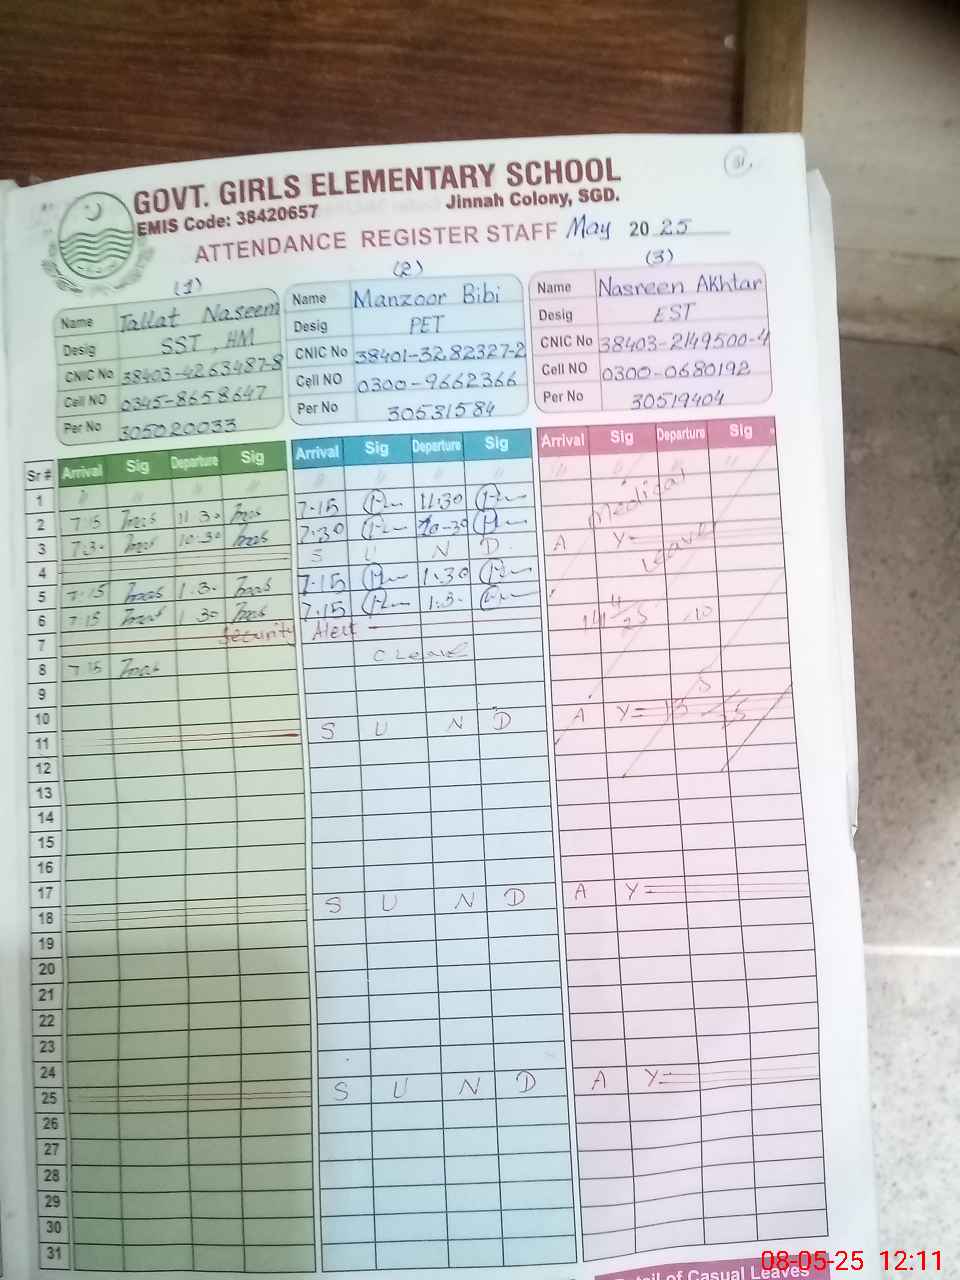 31.
GOVT. GIRLS ELEMENTARY SCHOOL
EMIS Code: 38420657 Jinnah Colony, SGD.
ATTENDANCE REGISTER STAFF May 2025
(1) (2) (3)
Name Tallat Naseem Name Manzoor Bibi Name Nasreen Akhtar
Desig SST, HM Desig PET Desig EST
CNIC No 38403-4263487-8 CNIC No 38401-3282327-2 CNIC No 38403-2149500-4
Cell NO 0345-8658647 Cell NO 0300-9662366 Cell NO 0300-0680192
Per No 305020033 Per No 30531584 Per No 30519404
Sr # Arrival Sig Departure Sig Arrival Sig Departure Sig Arrival Sig Departure Sig
1 " " " " " " " " " " "
2 7:15 11:30 7.15 11.30 Medical
3 7:30 10:30 7.30 10-30
4 S U N D A Y Leave
5 7:15 1.30 7.15 1.30
6 7:15 1 30 7.15 1.30
7 Security Alert
8 7:15 C Leave
9
10
11 S U N D A Y
12
13
14
15
16
17
18 S U N D A Y
19
20
21
22
23
24
25 S U N D A Y
26
27
28
29
30
31
Detail of Casual Leaves
08-05-25 12:11